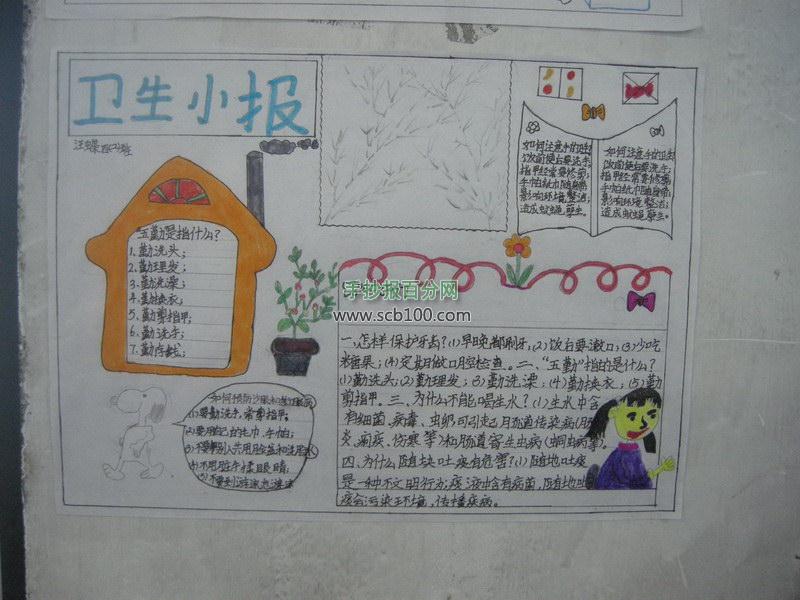 卫生小报
"五勤"是指什么?
1.勤洗头;
2.勤理发;
3.勤洗澡;
4.勤换衣;
5.勤剪指甲;
6.勤洗手;
如何注意手的卫生
饭前便后要洗手,
指甲经常要修剪;
手帕纸巾随身带,
影响环境整洁;
造成蚊蝇孳生。
如何注意手的卫生
饭前便后要洗手,
指甲经常要修剪;
手帕纸巾随身带,
影响环境整洁;
造成蚊蝇孳生。
手抄报百分网
www.scb100.com
一.怎样保护牙齿?(1)早晚都刷牙,(2)饭后要漱口;(3)少吃
糖果;(4)定期做口腔检查。二、"五勤"指的是什么?
(1)勤洗头;(2)勤理发;(3)勤洗澡;(4)勤换衣;(5)勤
剪指甲。三、为什么不能喝生水?(1)生水中含
有细菌、病毒、虫卵可引起肠道传染病(肝
炎、痢疾、伤寒等)和肠道寄生虫病(蛔虫病等)
四、为什么随地吐痰有危害?(1)随地吐痰
是一种不文明行为;痰液中含有病菌,随地吐
痰会污染环境,传播疾病。
(1)要勤洗手,常剪指甲。
(2)要用自己的毛巾、手帕;
(4)不用脏手揉眼睛,